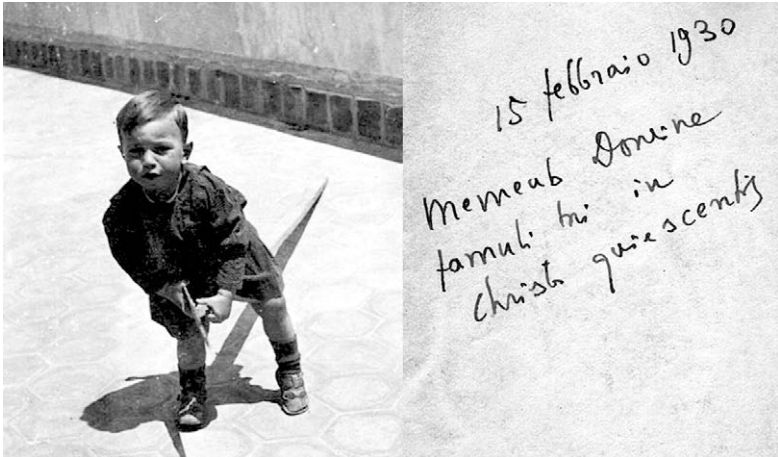 15 febbraio 1930
Memento Domine
famuli tui in
Christo quiescentis